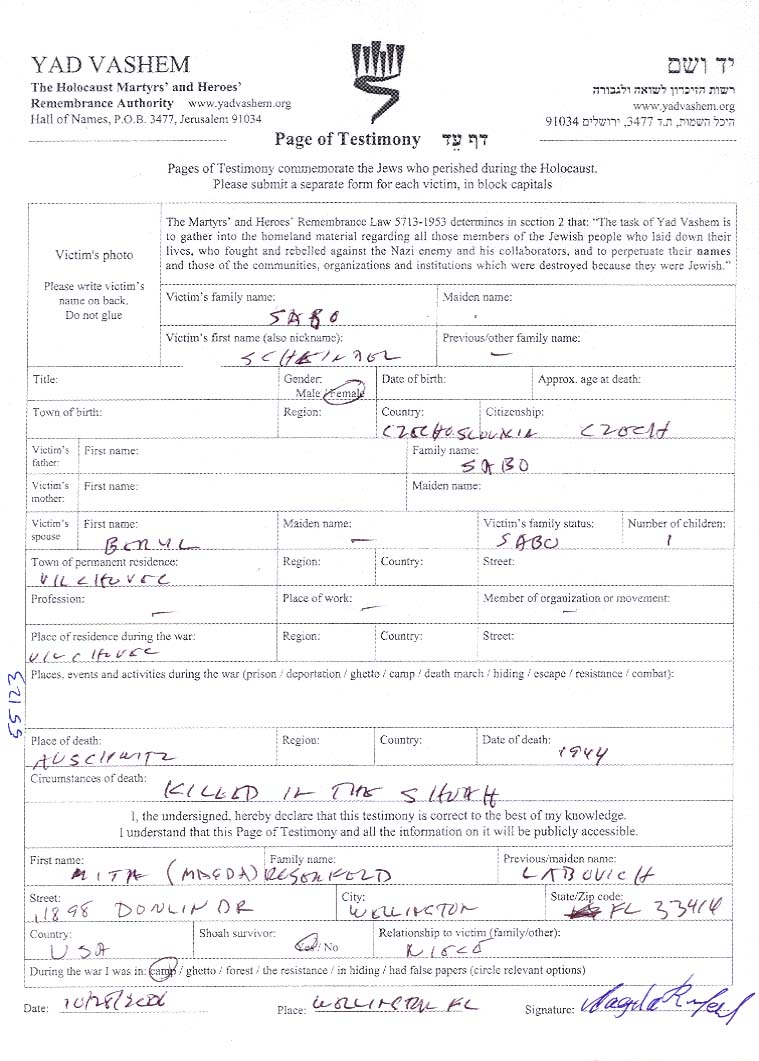 YAD VASHEM
The Holocaust Martyrs' and Heroes'
Remembrance Authority www.yadvashem.org
Hall of Names, P.O.B. 3477, Jerusalem 91034
יד ושם
רשות הזיכרון לשואה ולגבורה
www.yadvashem.org
היכל השמות, ת.ד 3477, ירושלים 91034
Page of Testimony דף עֵד
Pages of Testimony commemorate the Jews who perished during the Holocaust.
Please submit a separate form for each victim, in block capitals
Victim's photo
Please write victim's
name on back.
Do not glue
The Martyrs' and Heroes' Remembrance Law 5713-1953 determines in section 2 that: "The task of Yad Vashem is
to gather into the homeland material regarding all those members of the Jewish people who laid down their
lives, who fought and rebelled against the Nazi enemy and his collaborators, and to perpetuate their names
and those of the communities, organizations and institutions which were destroyed because they were Jewish."
Victim's family name: Maiden name:
SABO
Victim's first name (also nickname): Previous/other family name:
SCHEINDEL —
Title: Gender: Date of birth: Approx. age at death:
Male / Female
Town of birth: Region: Country: Citizenship:
CZECHOSLOVAKIA CZECH
Victim's father: First name: Family name:
SABO
Victim's mother: First name: Maiden name:
Victim's spouse First name: Maiden name: Victim's family status: Number of children:
BERYL — SABO 1
Town of permanent residence: Region: Country: Street:
VILCHOVEC
Profession: Place of work: Member of organization or movement:
— — —
Place of residence during the war: Region: Country: Street:
VILCHOVEC
Places, events and activities during the war (prison / deportation / ghetto / camp / death march / hiding / escape / resistance / combat):
55123
Place of death: Region: Country: Date of death:
AUSCHWITZ 1944
Circumstances of death:
KILLED IN THE SHOAH
I, the undersigned, hereby declare that this testimony is correct to the best of my knowledge.
I understand that this Page of Testimony and all the information on it will be publicly accessible.
First name: Family name: Previous/maiden name:
(MAGDA) LABOVICH
Street: City: State/Zip code:
11898 DONLIN DR WELLINGTON FL 33414
Country: Shoah survivor: Relationship to victim (family/other):
USA Yes / No NIECE
During the war I was in: camp / ghetto / forest / the resistance / in hiding / had false papers (circle relevant options)
Date: 10/28/2006 Place: WELLINGTON FL Signature: Magda